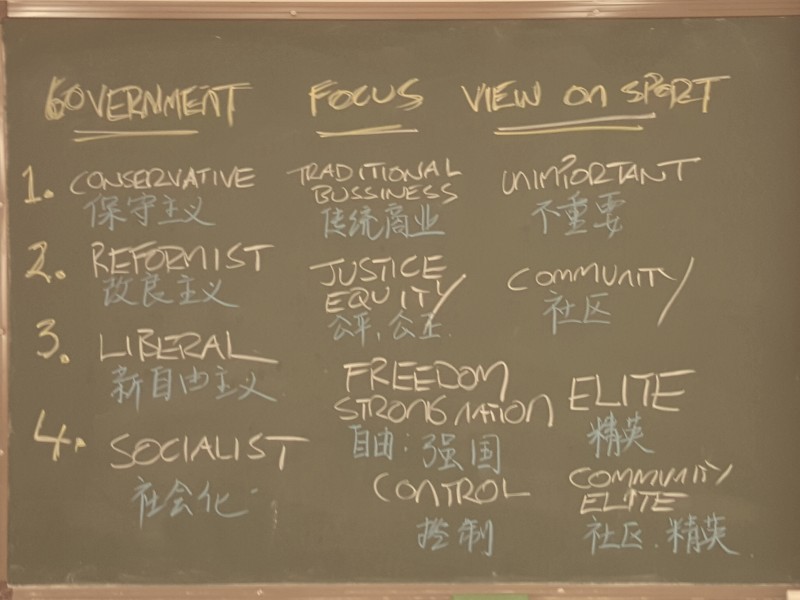 GOVERNMENT FOCUS VIEW ON SPORT
1. CONSERVATIVE TRADITIONAL BUSSINESS UNIMPORTANT
保守主义 传统商业 不重要
2. REFORMIST JUSTICE EQUITY COMMUNITY
改良主义 公平,公正. 社区
3. LIBERAL FREEDOM STRONG NATION ELITE
新自由主义 自由:强国 精英
4. SOCIALIST CONTROL COMMUNITY ELITE
社会化 控制 社区.精英